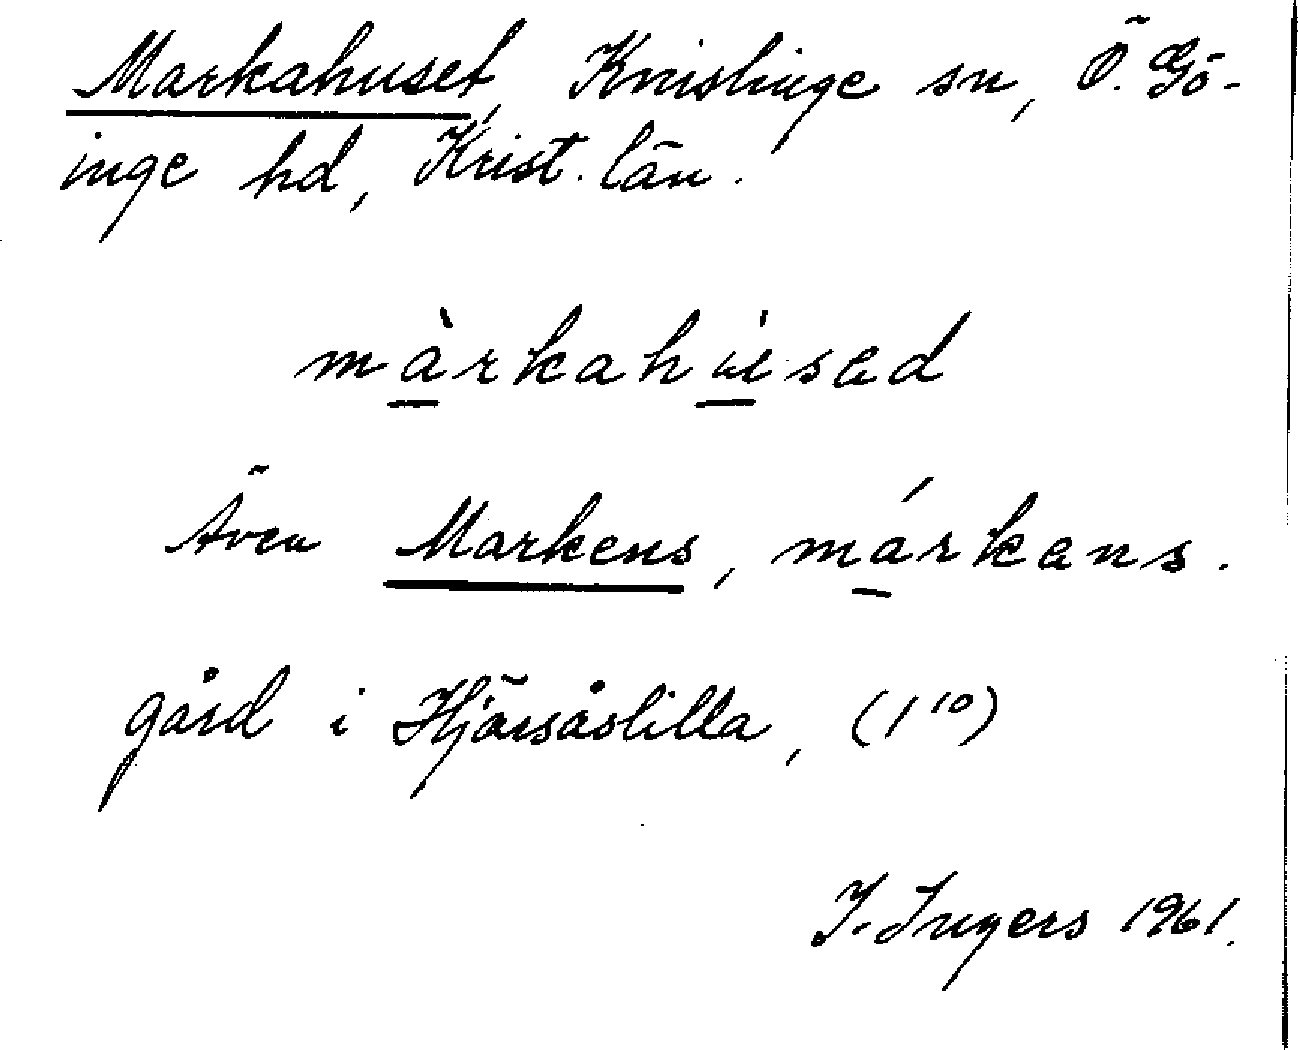 Markahuset, Knislinge sn, Ö. Gö-
inge hd, Krist. län.
màrkahúsad
Även Markens, márkans.
gård i Hjärsåslilla, (1¹⁰)
I. Ingers 1961.